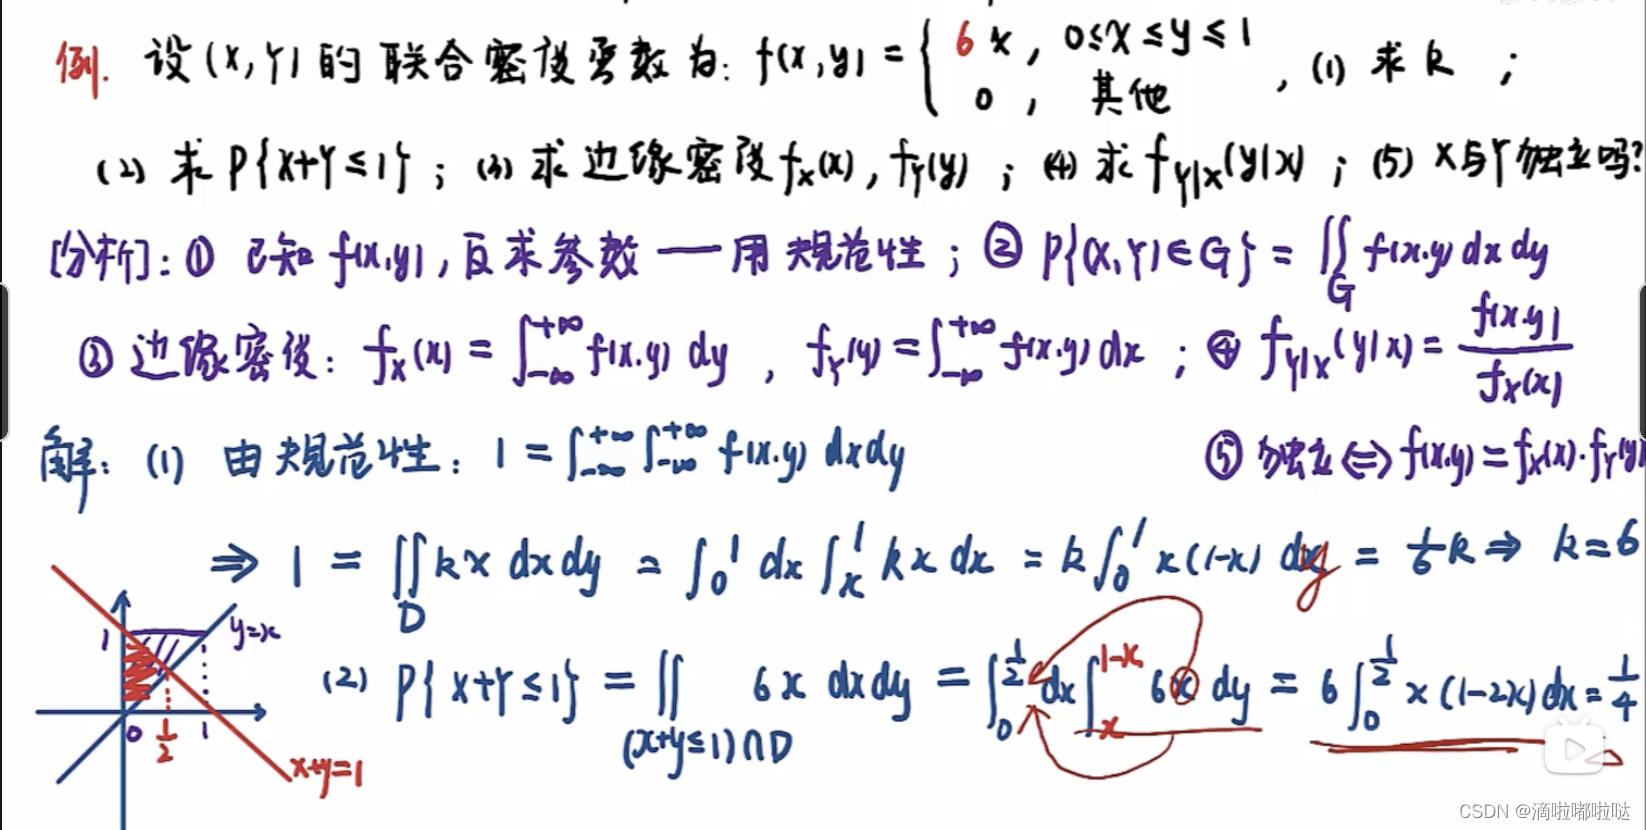 例. 设(X,Y)的联合密度函数为: f(x,y) = { 6x, 0≤x≤y≤1
0, 其他 , (1) 求k ;
(2) 求P{X+Y≤1} ; (3) 求边缘密度f_X(x), f_Y(y) ; (4) 求f_{Y|X}(y|x) ; (5) X与Y独立吗?
[分析]: ① 已知f(x,y), 反求参数 — 用规范性 ; ② P{(X,Y)∈G} = ∬_G f(x,y) dx dy
③ 边缘密度: f_X(x) = ∫_{-∞}^{+∞} f(x,y) dy , f_Y(y) = ∫_{-∞}^{+∞} f(x,y) dx ; ④ f_{Y|X}(y|x) = f(x,y)/f_X(x)
解: (1) 由规范性: 1 = ∫_{-∞}^{+∞} ∫_{-∞}^{+∞} f(x,y) dxdy
⑤ 独立 ⇔ f(x,y) = f_X(x)·f_Y(y)
⇒ 1 = ∬_D kx dxdy = ∫_0^1 dx ∫_x^1 kx dx = k∫_0^1 x(1-x) dy = 1/6 k ⇒ k=6
1 y=x 0 1/2 1 x+y=1
(2) P{X+Y≤1} = ∬_{(x+y≤1)∩D} 6x dxdy = ∫_0^{1/2} dx ∫_x^{1-x} 6x dy = 6∫_0^{1/2} x(1-2x) dx = 1/4
CSDN @滴啦嘟啦哒